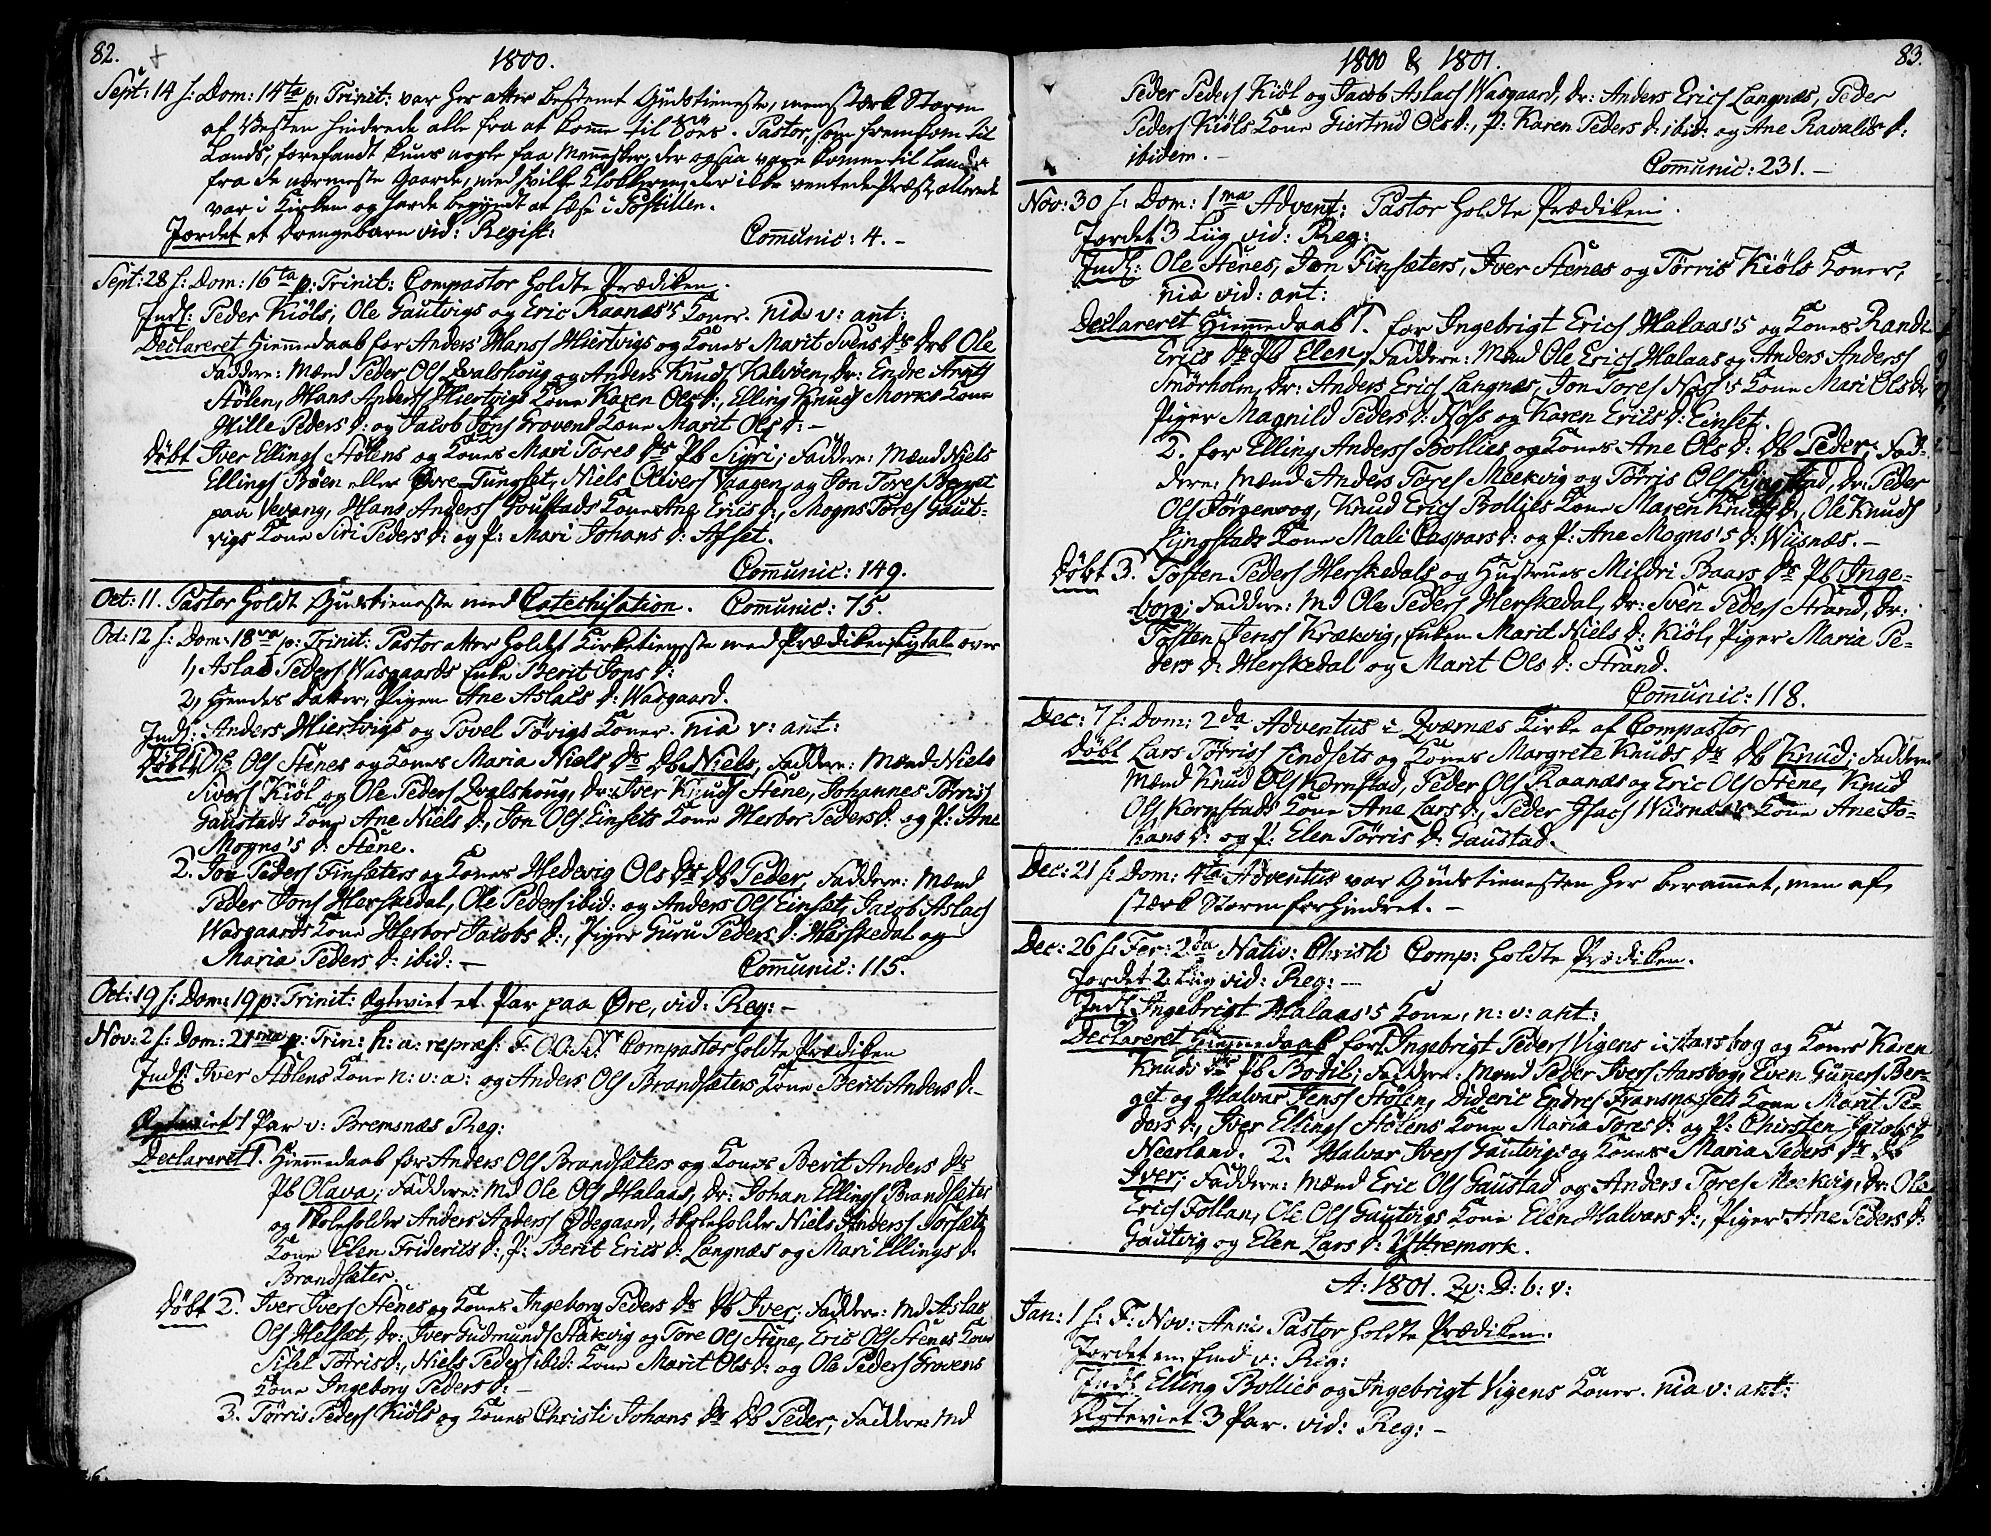 82.
1800.
Sept: 14 s: Dom: 14ta p: Trinit: var her atter bestemt Gudstieneste, men stærk Storm
af Vesten hindrede alle fra at komme til Søes. Pastor, som fremkom til
Lands, forefandt kuns nogle faa Mennesker, der ogsaa vare komne til Lands
fra de nærmeste Gaarde, med hvilke Klokkeren, der ikke ventede Præst, allerede
var i Kirken og havde begyndt at læse i Postillen.
Jordet et drengebarn vid: Regist: Comunic: 4. -
Sept: 28 s: Dom: 16ta p: Trinit: Compastor holdte Prædiken.
Indl: Peder Kiöls, Ole Gautvigs og Eric Raanæs's Koner. nia v: ant:
Declareret Hiemmedaab for Anders Hans Hiertvigs og Kones Marit Svens Dr Db Ole
Faddere: Mænd Peder Ols Qvalshoug og Anders Knuds Kalvöen, Dr: Endre Arnts
Stölen, Hans Anders Hiertvigs Kone Karen Ols D:, Elling Knuds Morks Kone
Hille Peders D: og Jacob Jons Grovens Kone Marit Ols D: -
Döbt Iver Ellings Stölens og Kones Mari Tores Dr Pb Sigri; Faddere: Mænd Niels
Ellings Böen eller Övre Tungset, Niels Olivers Vaagen, og Jon Tores Berget
paa Vevang, Hans Anders Goustads Kone Ane Erics D:, Mogns Tores Gaut-
vigs Kone Siri Peders D: og P: Mari Johans D: Afset.
Comunic: 149.
Oct: 11. Pastor holdt Gudstieneste med Catechisation. Comunic: 75.
Oct: 12 s: Dom: 18va p: Trinit: Pastor atter holdt Kirketieneste med Prædiken, Ligtale over
1, Aslac Peders Wasgaards Enke Berit Jons D:
2, Hendes Datter, Pigen Ane Aslacs D: Wasgaard.
Indl: Anders Hiertvigs og Povel Tövigs Koner. nia v: ant:
Döbt 1. Ole Ols Stenes og Kones Maria Niels Dr Db Niels, Faddere: Mænd Niels
Sivers Kiöl og Ole Peders Qvalshoug, Dr: Iver Knuds Stene, Johannes Törris
Gaustads Kone Ane Niels D:, Jon Ols Einsets Kone Herbor Peders D: og P: Ane
Mogns's D: Stene.
2. Jon Peders Finsæters og Kones Hedevig Ols Dr Db Peder, Faddere: Mænd
Peder Jons Herskedal, Ole Peders ibid: og Anders Ols Einset, Jacob Aslacs
Wasgaards Kone Herbor Jacobs D:, Piger Guru Peders D: Herskedal og
Maria Peders D: ibid: - Comunic: 115.
Oct: 19 s: Dom: 19 p: Trinit: Ægteviet et Par paa Öre, vid: Reg: -
Nov: 2 s: Dom: 21ma p: Trin: h: a: repræs: F: O.O. SS: Compastor holdte Prædiken
Indl: Iver Stölens Kone n: v: a: og Anders Ols Brandsæters Kone Berit Anders D: -
Ægteviet 1 Par v: Bremsnæs Reg:
Declareret 1. Hiemmedaab for Anders Ols Brandsæters og Kones Berit Anders Dr
Pb Olava; Faddere: Md Ole Ols Halaas, Dr: Johan Ellings Brandsæter
og Skoleholder Anders Anders Ödegaard, Skoleholder Niels Anders Torsæts
Kone Elen Friderics D:, P: Berit Erics D: Langnæs og Mari Ellings D.
Brandsæter.
Döbt 2. Iver Ivers Stenes og Kones Ingeborg Peders Dr Db Iver; Faddere: Md Aslac
Ols Helset, Dr: Iver Gudmunds Stakvig og Tore Ols Stene, Eric Ols Stenes Kone
Sisel Törris D:, Niels Peders ibid: Kone Marit Ols D: og Ole Peders Grovens
Kone Ingeborg Peders D: -
3. Törris Peders Kiöls og Kones Christi Johans Dr Db Peder, Faddere: Md
1800 & 1801.
83.
Peder Peders Kiöl og Jacob Aslacs Wasgaard, Dr: Anders Erics Langnæs, Peder
Peders Kiöls Kone Giertrud Ols D:, P: Karen Peders D: ibid: og Ane Ravalds D:
ibidem. -
Comunic: 231. -
Nov: 30 s: Dom: 1ma Advent: Pastor holdte Prædiken.
Jordet 3 Liig vid: Reg:
Indl: Ole Stenes, Jon Finsæters, Iver Stenes og Törris Kiöls Koner,
nia vid: ant:
Declareret Hiemmedaab 1. for Ingebrigt Erics Halaas's og Kones Randi
Erics Dr Pb Elen, Faddere: Mænd Ole Erics Halaas og Anders Anders
Smörholm, Dr: Anders Erics Langnæs, Jon Tores Næss's Kone Mari Ols Dr
Piger Magnild Peders D: Næss og Karen Erics D: Einset.
2. for Elling Anders Bollies og Kones Ane Ols D: Db Peder, Fad-
dere: Mænd Anders Tores Meekvig og Törris Ols Lyngstad, Dr: Peder
Ols Jörgenvog, Knud Erics Bollies Kone Maren Knuds D:, Ole Knuds
Lyngstads Kone Mali Caspars D: og P: Ane Mogns's D: Wisnæs. -
Döbt 3. Tosten Peders Herskedals og Hustrues Mildri Baars Dr Pb Inge-
borg; Faddere: Md Ole Peders Herskedal, Dr: Sven Peders Strand, Dr:
Tosten Jens Krækvig, Enken Marit Niels D: Kiöl, Piger Maria Pe-
ders D: Herskedal og Marit Ols D: Strand.
Comunic: 118.
Dec: 7 s: Dom: 2da Adventus i Qværnæs Kirke af Compastor
Döbt Lars Törris Lindsets og Kones Margrete Knuds Dr Db Knud; Faddere
Mænd Knud Ols Kornstad, Peder Ols Raanæs og Eric Ols Stene, Knud
Ols Kornstads Kone Ane Lars D:, Peder Isacs Wisnæs's Kone Ane Jo-
hans D: og P: Elen Törris D: Gaustad.
Dec: 21 s: Dom: 4ta Adventus var Gudstienesten her berammet, men af
stærk Storm forhindret. -
Dec: 26 s: Fer: 2da Nativ: Christi Comp: holdte Prædiken.
Jordet 2 Liig vid: Reg: -
Indl: Ingebrigt Halaas's Kone, n: v: ant:
Declareret Hiemmedaab for 1. Ingebrigt Peders Vigens i Aarsbog og Kones Karen
Knuds Dr Pb Bodil; Faddere: Mænd Peder Ivers Aarsbog, Even Gunners Ber-
get og Halvar Jens Stölen, Dideric Endres Fransnæssets Kone Marit Pe-
ders D:, Iver Ellings Stölens Kone Maria Tores D: og P: Chirsten Jacobs D:
Neerland. 2. Halvar Ivers Gautvigs og Kones Maria Peders Dr Db
Iver; Faddere: Mænd Eric Ols Gaustad og Anders Tores Meekvig, Dr: Ole
Erics Follan, Ole Ols Gautvigs Kone Elen Halvars D:, Piger Ane Peders D:
Gautvig og Elen Lars D: Yttremork.
A: 1801. Qv: D: b: v:
Jan: 1 s: F: Nov: Anni Pastor holdte Prædiken.
Jordet en Ind v: Reg:
Indl: Elling Bollies og Ingebrigt Vigens Koner. nia v: ant:
Ægteviet 3 Par. vid: Reg: -